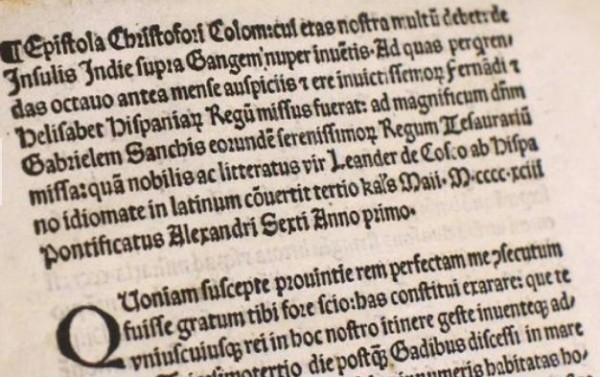 ¶ Epistola Christofori Colom: cui etas nostra multū debet: de
Insulis Indie supra Gangem nuper inuētis. Ad quas perqren/
das octauo antea mense auspiciis ⁊ ere inuictissemoꝝ Fernādi ⁊
Helisabet Hispaniaꝝ Regū missus fuerat: ad magnificum dñm
Gabrielem Sanchis eorundē serenissimoꝝ Regum Tesaurariū
missa: quā nobilis ac litteratus vir Leander de Cosco ab Hispa
no idiomate in latinum cōuertit tertio kal's Maii. M.cccc.xciii
Pontificatus Alexandri Sexti Anno primo.
Quoniam suscepte prouintie rem perfectam me ꝯsecutum
fuisse gratum tibi fore scio: has constitui exarare: que te
vniuscuiusqꝫ rei in hoc nostro itinere geste inuenteqꝫ ad/
die postqꝫ Gadibus discessi in mare
innumeris habitatas ho/